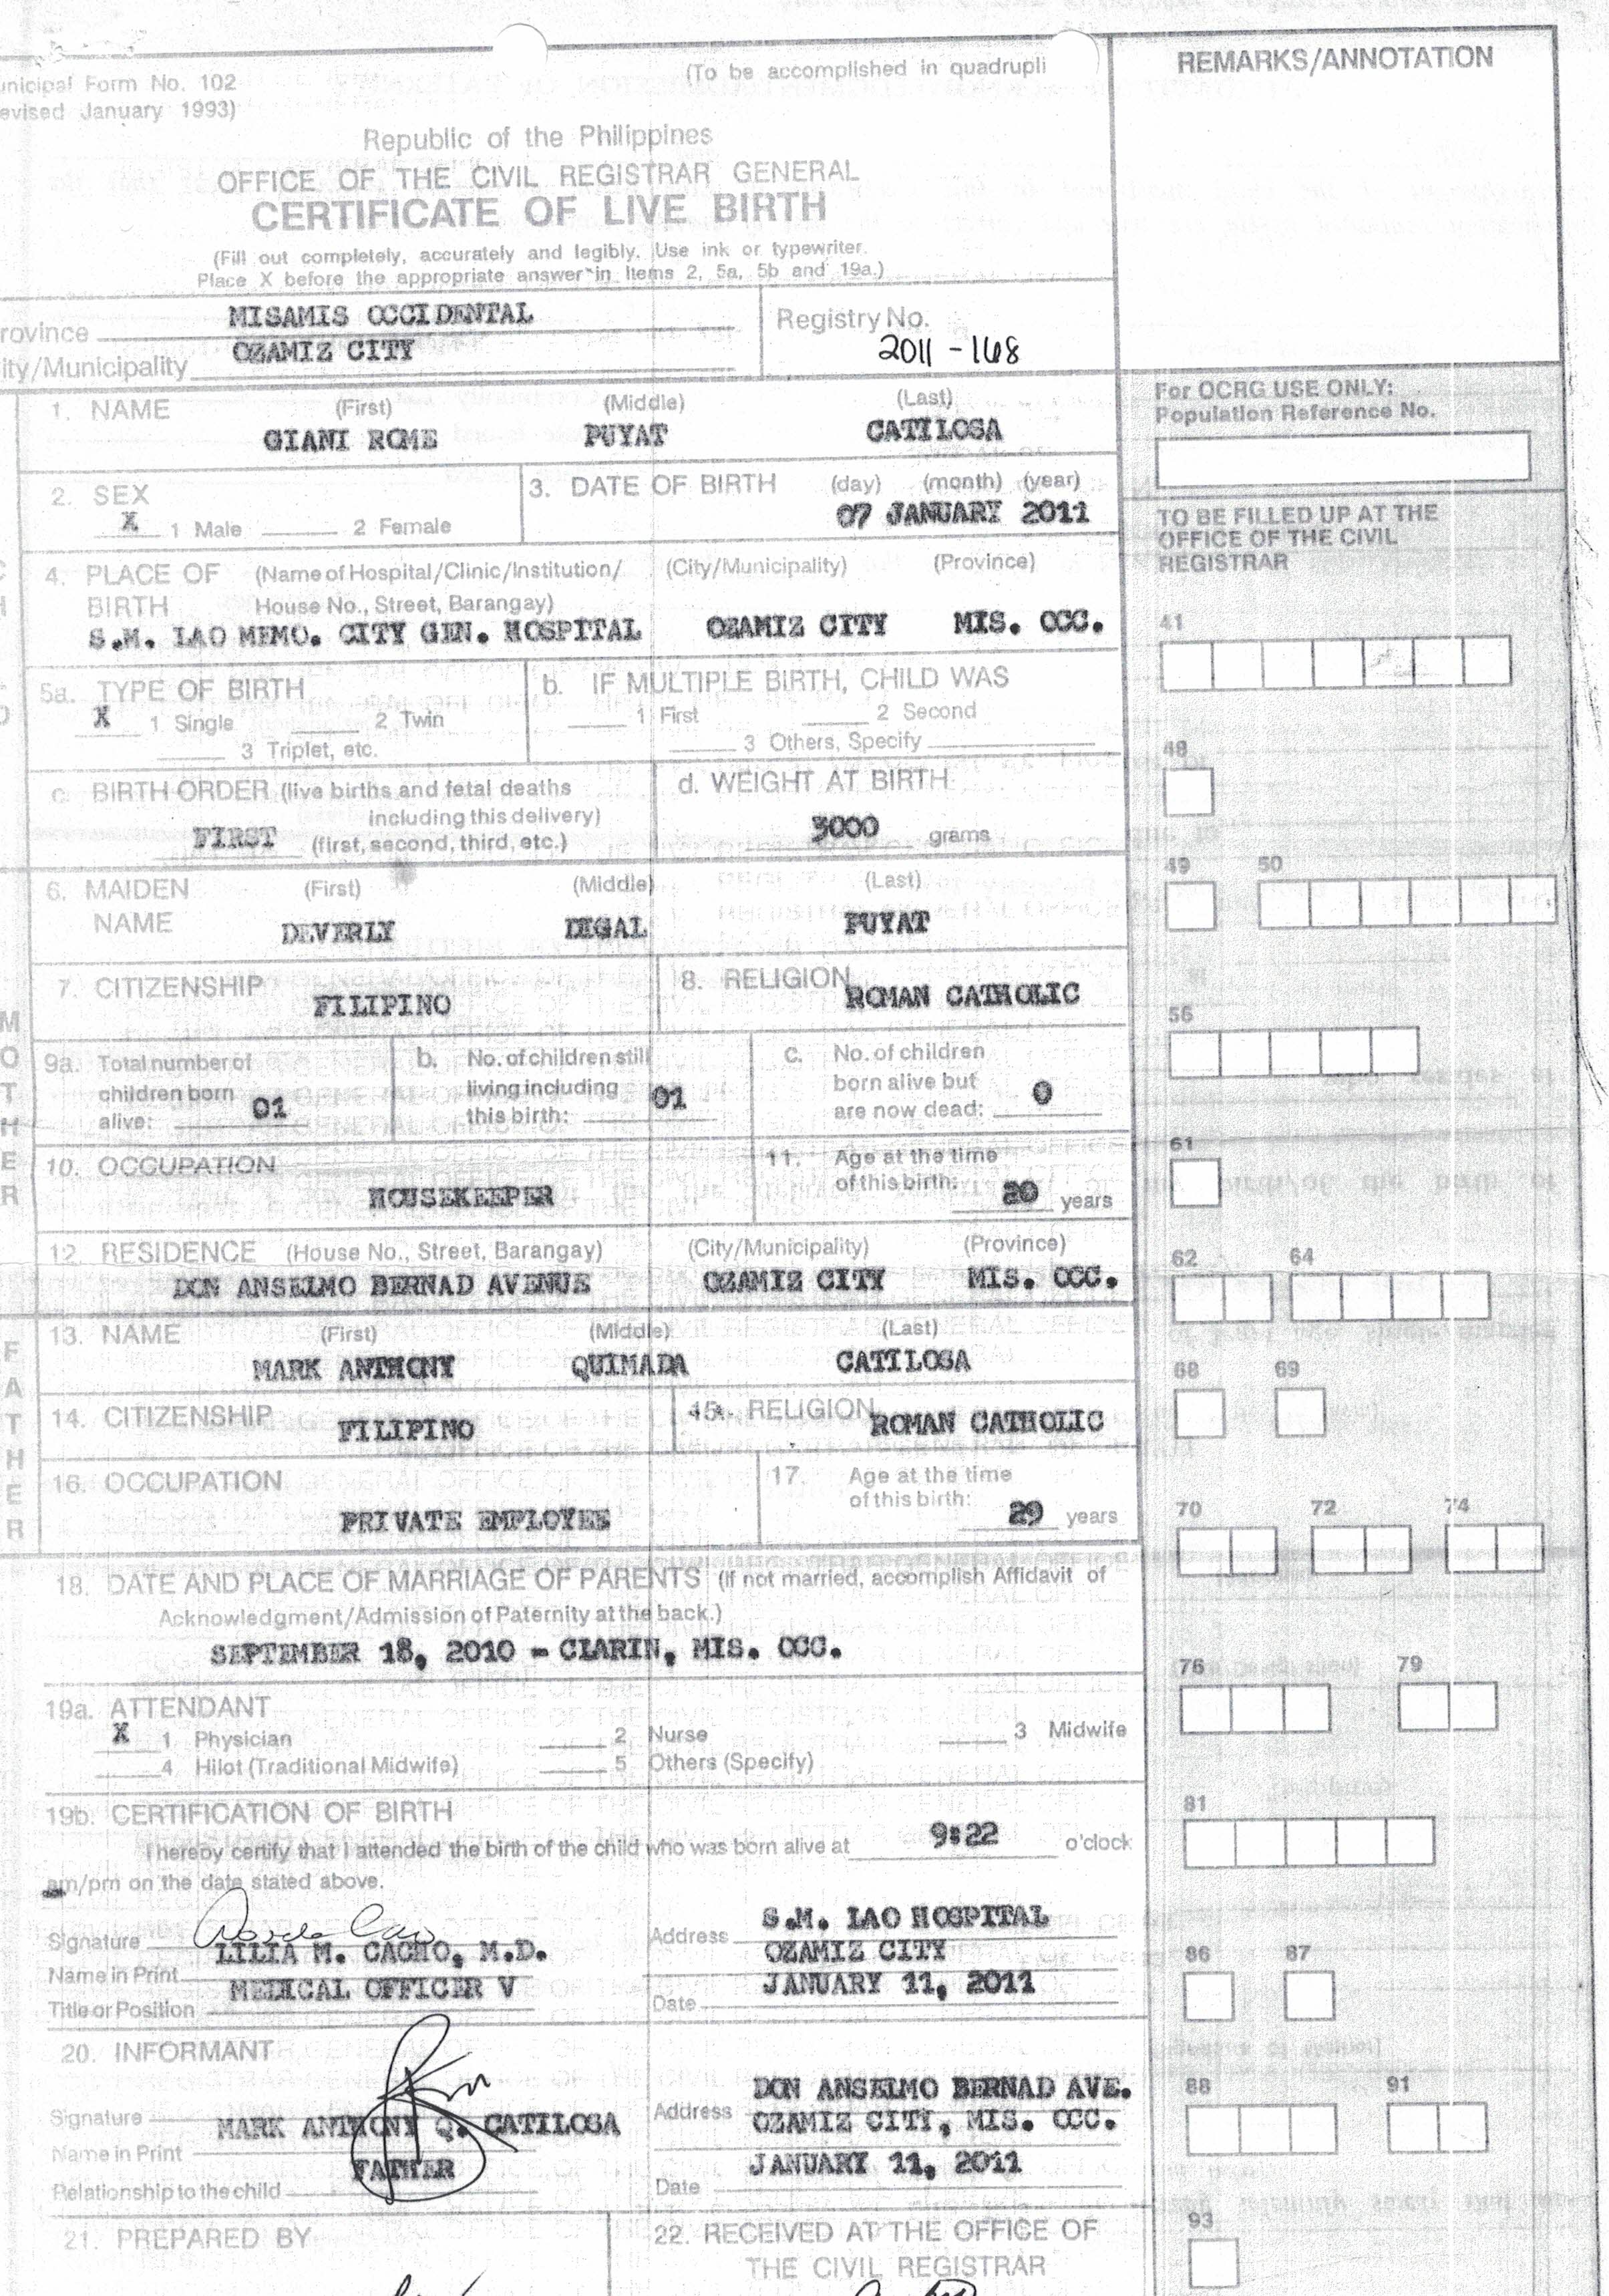 unicipal Form No. 102
(To be accomplished in quadrupli
evised January 1993)
Republic of the Philippines
OFFICE OF THE CIVIL REGISTRAR GENERAL
CERTIFICATE OF LIVE BIRTH
(Fill out completely, accurately and legibly. Use ink or typewriter.
Place X before the appropriate answer in Items 2, 5a, 5b and 19a.)
rovince MISAMIS OCCIDENTAL
ity/Municipality OZAMIZ CITY
Registry No.
2011-168
1. NAME (First) (Middle) (Last)
GIANI ROME PUYAT CATILOSA
2. SEX
X 1 Male 2 Female
3. DATE OF BIRTH (day) (month) (year)
07 JANUARY 2011
4. PLACE OF (Name of Hospital/Clinic/Institution/ (City/Municipality) (Province)
BIRTH House No., Street, Barangay)
S.M. LAO MEMO. CITY GEN. HOSPITAL OZAMIZ CITY MIS. OCC.
5a. TYPE OF BIRTH
X 1 Single 2 Twin
3 Triplet, etc.
b. IF MULTIPLE BIRTH, CHILD WAS
1 First 2 Second
3 Others, Specify
c. BIRTH ORDER (live births and fetal deaths
including this delivery)
FIRST (first, second, third, etc.)
d. WEIGHT AT BIRTH
3000 grams
MOTHER
6. MAIDEN (First) (Middle) (Last)
NAME
DEVERLY DIGAL PUYAT
7. CITIZENSHIP
FILIPINO
8. RELIGION
ROMAN CATHOLIC
9a. Total number of
children born
alive: 01
b. No. of children still
living including
this birth: 01
c. No. of children
born alive but
are now dead: 0
10. OCCUPATION
HOUSEKEEPER
11. Age at the time
of this birth: 20 years
12. RESIDENCE (House No., Street, Barangay) (City/Municipality) (Province)
DON ANSELMO BERNAD AVENUE OZAMIZ CITY MIS. OCC.
FATHER
13. NAME (First) (Middle) (Last)
MARK ANTHONY QUIMADA CATILOSA
14. CITIZENSHIP
FILIPINO
15. RELIGION
ROMAN CATHOLIC
16. OCCUPATION
PRIVATE EMPLOYEE
17. Age at the time
of this birth: 29 years
18. DATE AND PLACE OF MARRIAGE OF PARENTS (If not married, accomplish Affidavit of
Acknowledgment/Admission of Paternity at the back.)
SEPTEMBER 18, 2010 - CLARIN, MIS. OCC.
19a. ATTENDANT
X 1 Physician 2 Nurse 3 Midwife
4 Hilot (Traditional Midwife) 5 Others (Specify)
19b. CERTIFICATION OF BIRTH
I hereby certify that I attended the birth of the child who was born alive at 9:22 o'clock
am/pm on the date stated above.
Signature
Name in Print LILIA M. CACHO, M.D.
Title or Position MEDICAL OFFICER V
Address S.M. LAO HOSPITAL
OZAMIZ CITY
Date JANUARY 11, 2011
20. INFORMANT
Signature
Name in Print MARK ANTHONY Q. CATILOSA
Relationship to the child FATHER
Address DON ANSELMO BERNAD AVE.
OZAMIZ CITY, MIS. OCC.
Date JANUARY 11, 2011
21. PREPARED BY
22. RECEIVED AT THE OFFICE OF
THE CIVIL REGISTRAR
REMARKS/ANNOTATION
For OCRG USE ONLY:
Population Reference No.
TO BE FILLED UP AT THE
OFFICE OF THE CIVIL
REGISTRAR
41
48
49 50
56
61
62 64
68 69
70 72 74
76 79
81
86 87
88 91
93